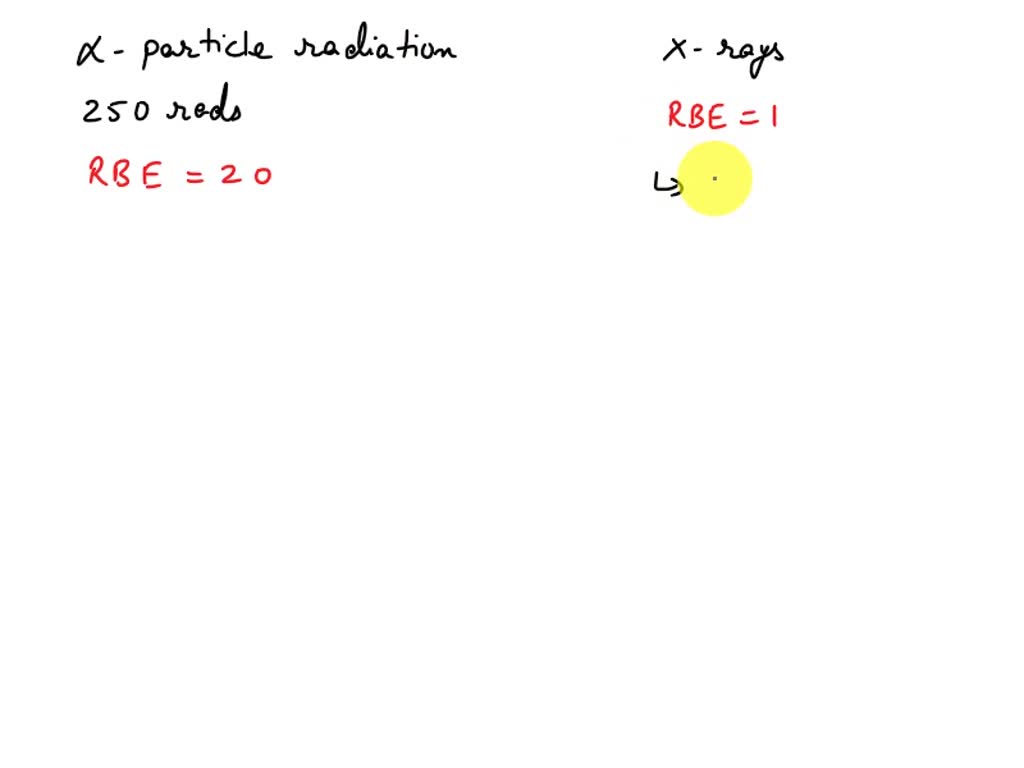 α - particle radiation
250 rads
RBE = 20
X - rays
RBE = 1
↳